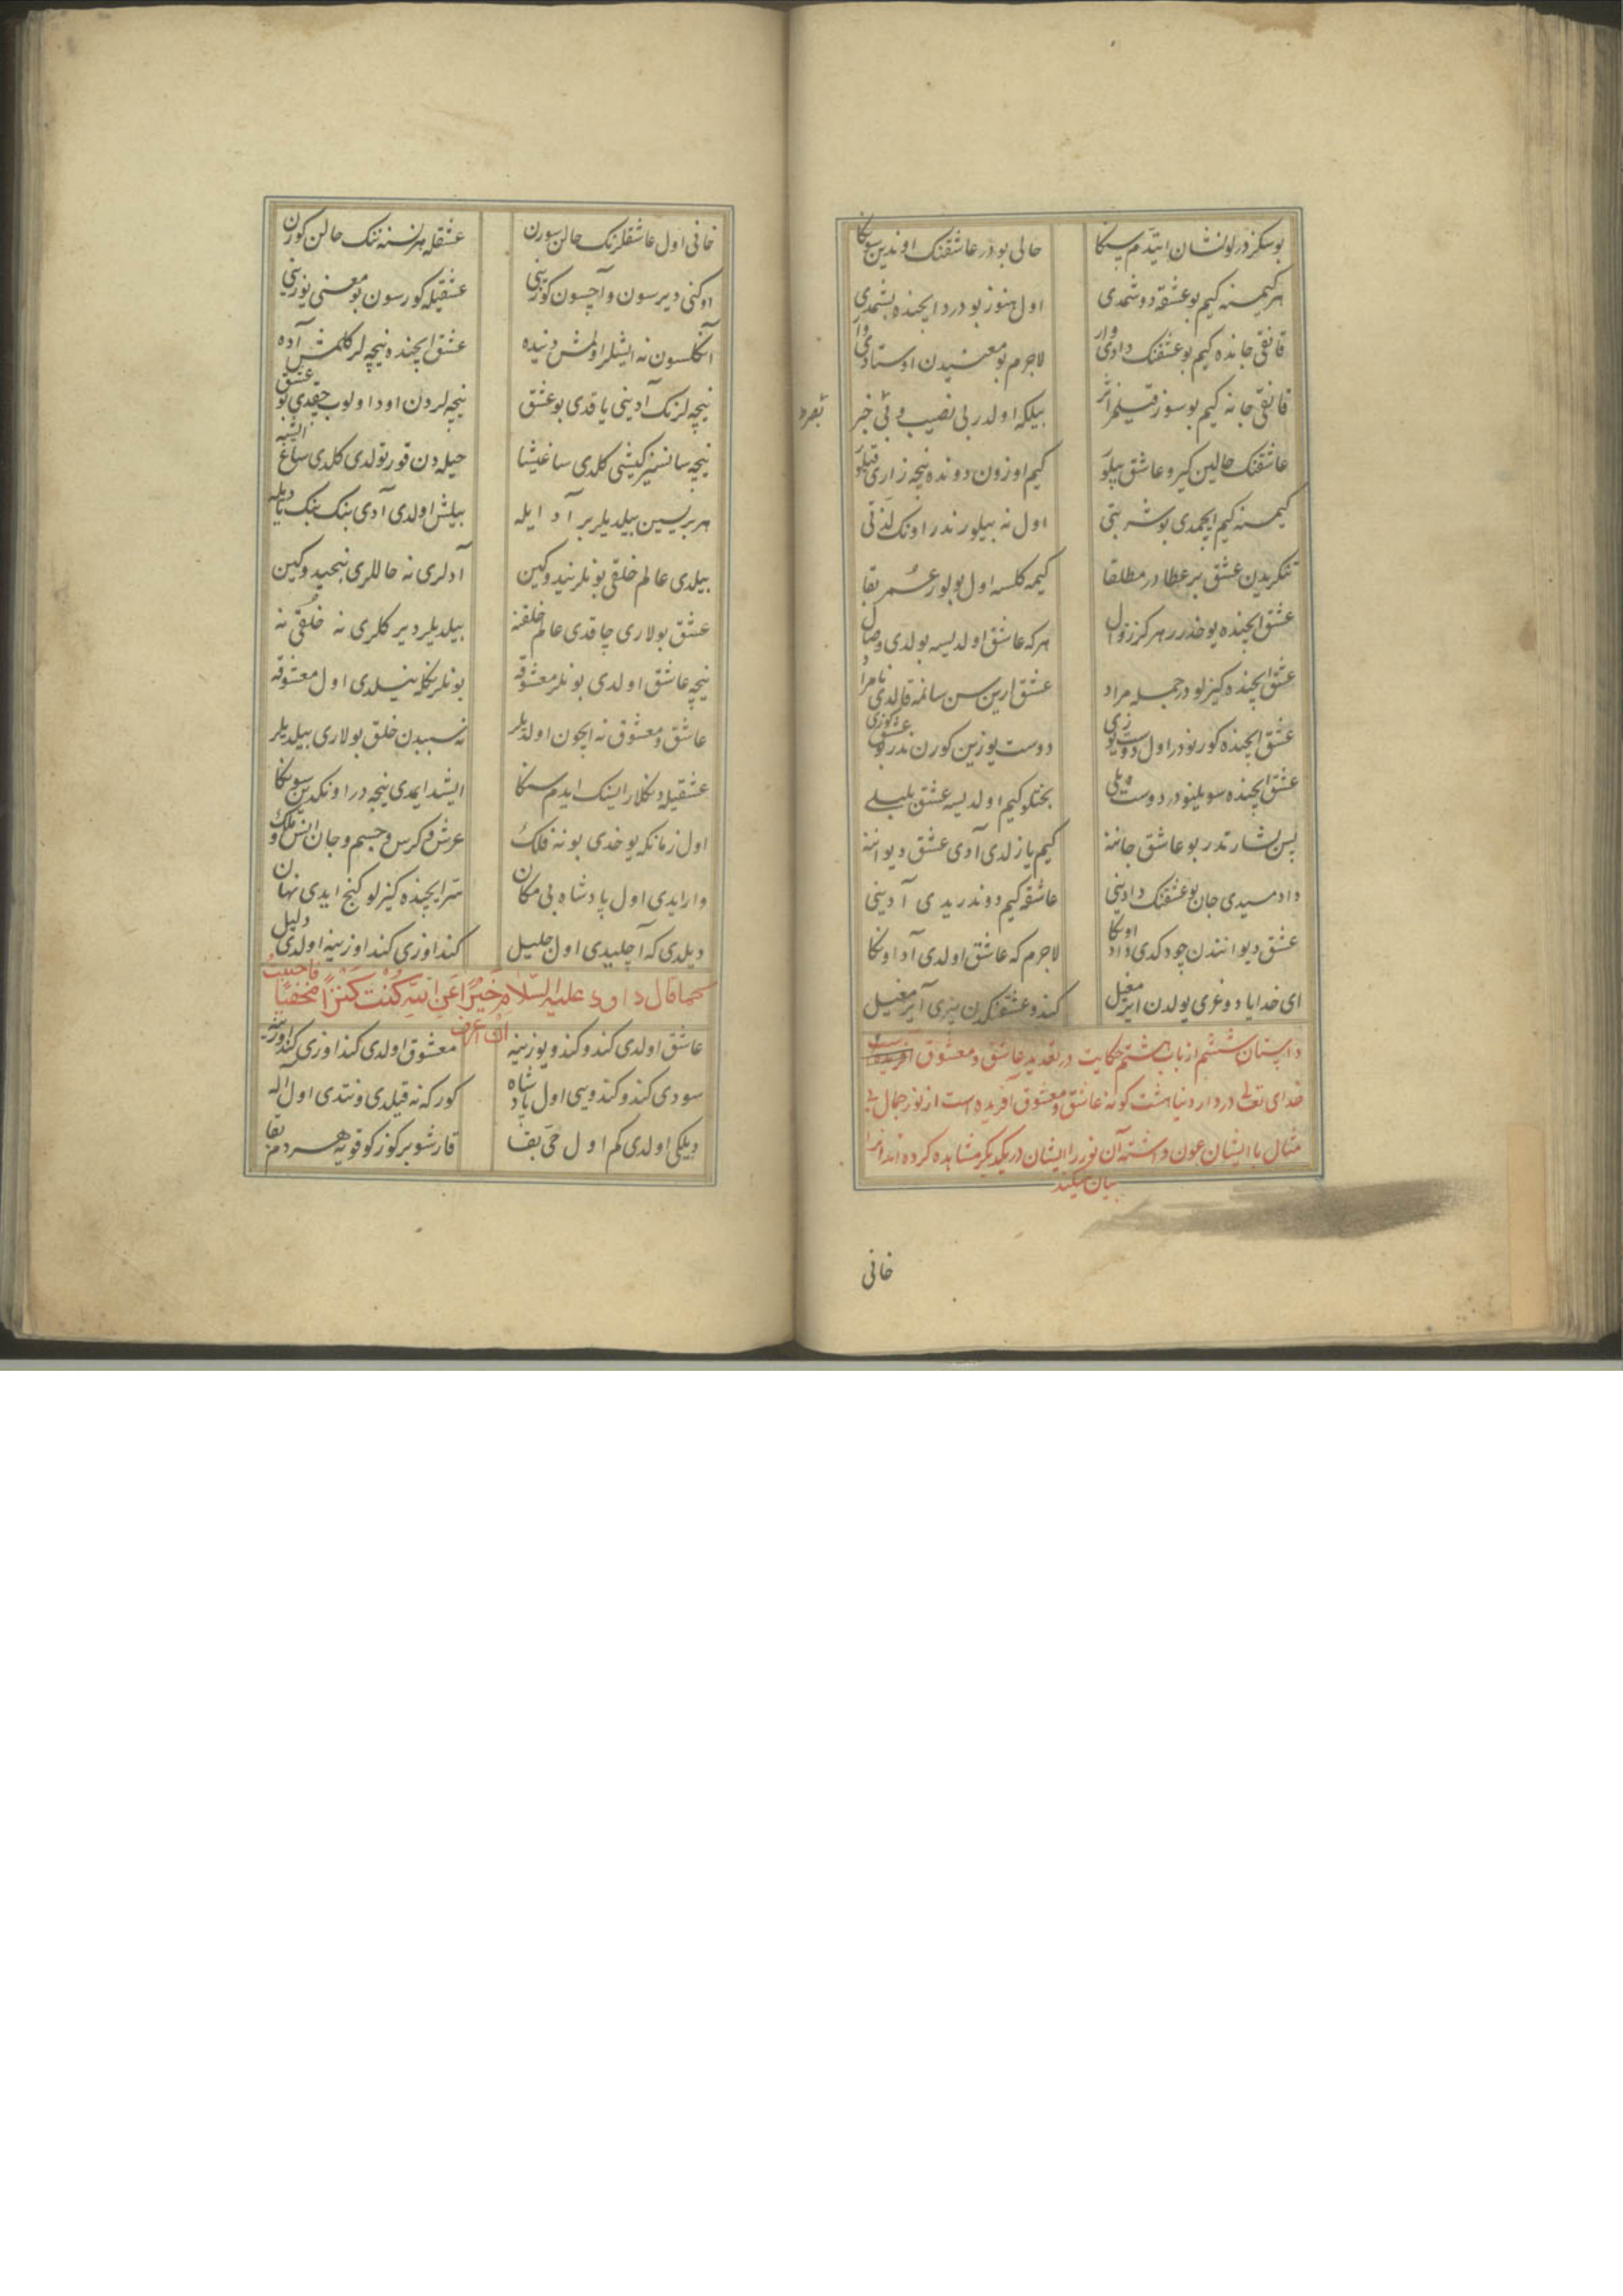 بو سکز درلو نشان ایتدم سکا حالی بودر عاشقنک اوندین سوکا
هر کیمسنه کیم بو عشقه دوشمدی اول هنوز بو درد ایچنده بشمدی
قانقی جانده کیم بو عشقنک دادی وار لاجرم بو معنیدن اوستادی وار
قانقی جانه کیم بو سوز قیلمز اثر بیلکه اولدر بی نصیب و بی خبر
عاشقنک حالین کیرو عاشق بیلو کیم اوزون دونده نیچه زاری قیلو
کیمسنه کیم ایچمدی بو شربتی اول نه بیلور ندر اونک لذتی
تنکریدن عشق بر عطادر مطلقا کیمه کلسه اول بولور عمر بقا
عشق ایچنده یوخدر هرکز زوال هر که عاشق اولدیسه بولدی وصال
عشق ایچنده کیزلودر جمله مراد عشق ارین سن سانمه قالدی نامراد
عشق ایچنده کورنودر اول دوست یوزی دوست یوزین کورن بدر بو عشق کوزی
عشق ایچنده سویلینودر دوست دیلی بختلو کیم اولدیسه عشق بلبلی
پس بشارتدر بو عاشق جاننه کیم یازلدی آدی عشق دیواننه
دادمسیدی جان بو عشقنک دادینی عاشقه کیم دوندریدی آدینی
عشق دیوانندن چو کلدی داد اوکا لاجرم که عاشق اولدی آد اوکا
ای خدایا دوغری یولدن ایرمغیل کندو عشقنکدن بزی آیرمغیل
داستان ششم از باب هشتم حکایت در تعدید عاشق و معشوق
خدای تعالی در دار دنیا هشت کونه عاشق و معشوق آفریده است از نور جمال بی
مثال با ایشان عون داشته آن نور را ایشان در یکدیگر مشاهده کرده اند انرا
بیان میکند
خانی
خانی اول عاشقلرنک حالن سورن عشقله هر نسنه ننک حالن کورن
اوکنی دیرسون و آچسون کوزینی عشقیله کورسون بو معنی یوزینی
آکلسون نه ایشلر اولمش دنیده عشق ایچنده نیچه لر کلمش آده
نیچه لرنک آدینی یاقدی بو عشق نیچه لردن اود اولوب چقدی بو عشق
هر بریسین بیلدیلر بر آد ایله
بیلدی عالم خلقی بونلر نیدوکین آدلری نه حاللری نیچیدوکین
عشق بولاری چاقدی عالم خلقنه بیلدیلر دیرکلری نه خلقی نه
نیچه عاشق اولدی بونلر معشوقه بونلرنکله نیلدی اول معشوقه
عاشق و معشوق نه ایچون اولدیلر نه سببدن خلق بولاری بیلدیلر
عشقیله دکلار اینک ایدم سکا ایشد ایمدی نیچه در اوندین سوکا
اول زمانکه یوخدی بو نه فلک عرش و کرس و جسم و جان انس و ملک
وارایدی اول پادشاه بی مکان سرایچنده کیزلو کنج ایدی نهان
دیلدی که آچلیدی اول جلیل کند اوزی کند اوزینه اولدی دلیل
کما قال داود علیه السلام خبرا عن الله کنت کنزا مخفیا فاحببت
ان اعرف
عاشق اولدی کندو کندو یوزینه معشوق اولدی کند اوزی کند اوزینه
سودی کندو کندویی اول پادشاه کور که نه قیلدی و نتدی اول اله
دیلکی اولدی کم اول حی بقا قارشو بر کوزکو قویه هر دم بقا